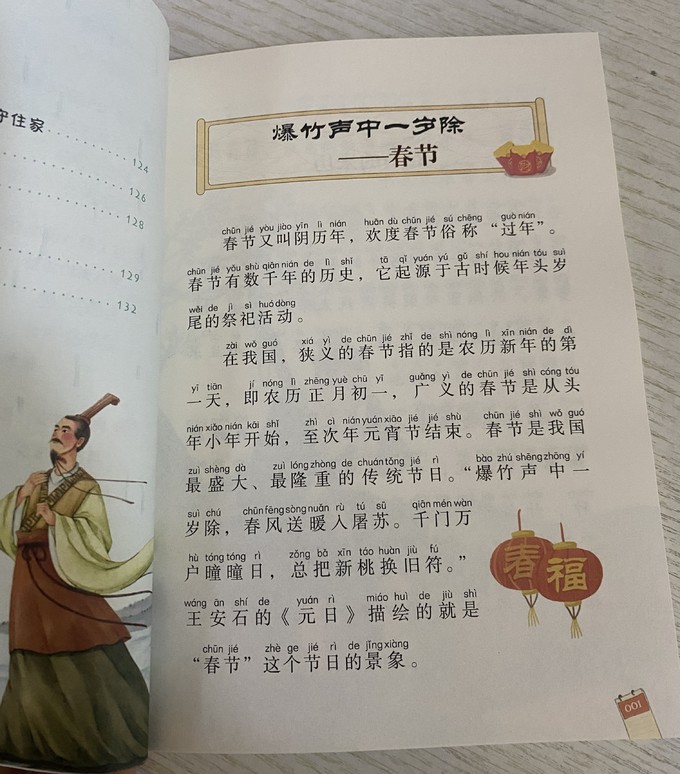 守住家
124
126
128
129
132
爆竹声中一岁除
——春节
chūn jié yòu jiào yīn lì nián huān dù chūn jié sú chēng guò nián
春节又叫阴历年，欢度春节俗称“过年”。
chūn jié yǒu shù qiān nián de lì shǐ tā qǐ yuán yú gǔ shí hou nián tóu suì
春节有数千年的历史，它起源于古时候年头岁
wěi de jì sì huó dòng
尾的祭祀活动。
zài wǒ guó xiá yì de chūn jié zhǐ de shì nóng lì xīn nián de dì
在我国，狭义的春节指的是农历新年的第
yī tiān jí nóng lì zhēng yuè chū yī guǎng yì de chūn jié shì cóng tóu
一天，即农历正月初一，广义的春节是从头
nián xiǎo nián kāi shǐ zhì cì nián yuán xiāo jié jié shù chūn jié shì wǒ guó
年小年开始，至次年元宵节结束。春节是我国
zuì shèng dà zuì lóng zhòng de chuán tǒng jié rì bào zhú shēng zhōng yí
最盛大、最隆重的传统节日。“爆竹声中一
suì chú chūn fēng sòng nuǎn rù tú sū qiān mén wàn
岁除，春风送暖入屠苏。千门万
hù tóng tóng rì zǒng bǎ xīn táo huàn jiù fú
户曈曈日，总把新桃换旧符。”
wáng ān shí de yuán rì miáo huì de jiù shì
王安石的《元日》描绘的就是
chūn jié zhè ge jié rì de jǐng xiàng
“春节”这个节日的景象。
春
福
001